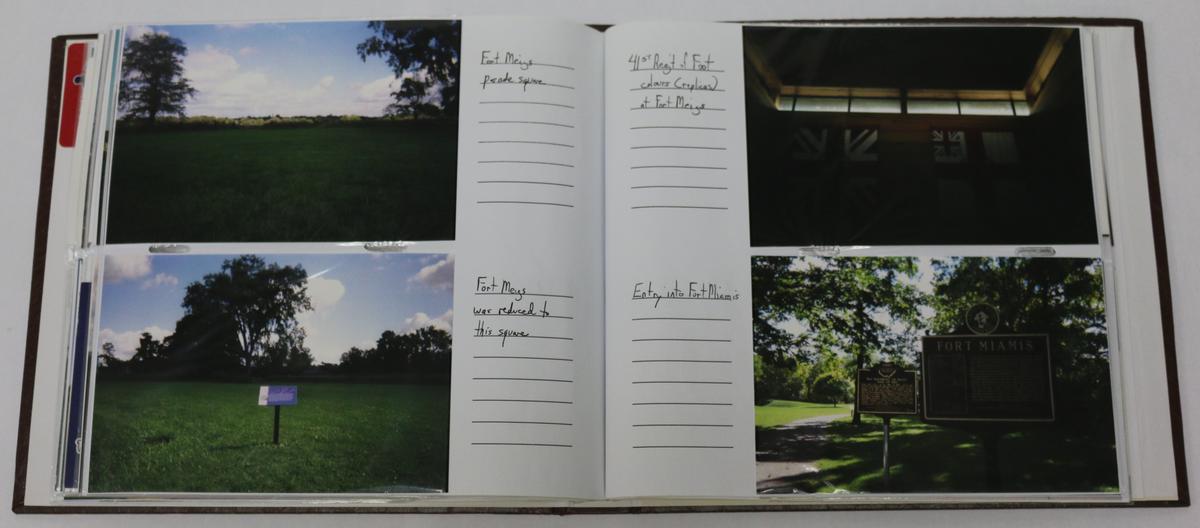 Fort Meigs
parade square
Fort Meigs
was reduced to
this square
41st Regt of Foot
colours (replicas)
at Fort Meigs
Entry into Fort Miamis
FORT MIAMIS